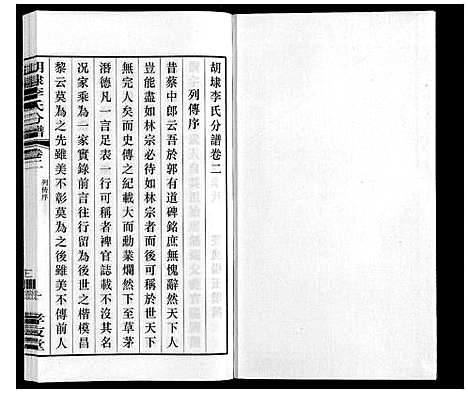 胡埭李氏分譜卷二
列傳序
昔蔡中郎云吾於郭有道碑銘庶無愧辭然天下人
豈能盡如林宗必待如林宗者而可稱於世天下
無完人矣而史傳之紀載大而勳業爛然下至草茅
潛德凡一言足表一行可稱者裨官誌載不沒其名
况家乘為一家實錄前言往行留為後世之楷模昌
黎云莫為之先雖美不彰莫為之後雖美不傳前人
胡埭李氏分譜
卷二
列传序